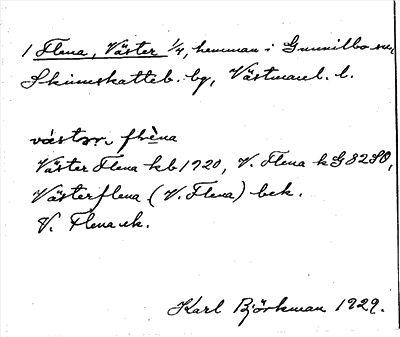 1 Flena, Väster 1/4, hemman i Gunnilbo sn,
Skinnskatteb. bg, Västmanl. l.
västər flèna
Väster Flena kb 1720, V. Flena k G 82 SO,
Västerflena (V. Flena) bek.
V. Flena ek.
Karl Björkman 1929.